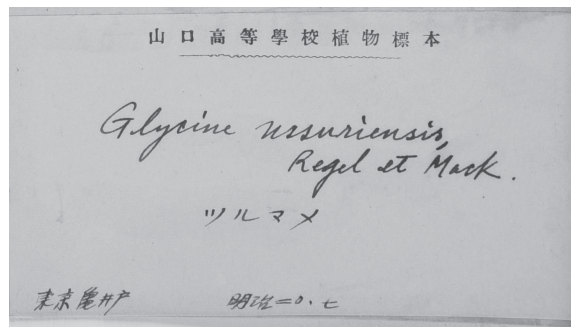 山口高等學校植物標本
Glycine ussuriensis,
Regel et Maack.
ツルマメ
東京亀井戸 明治二〇.七